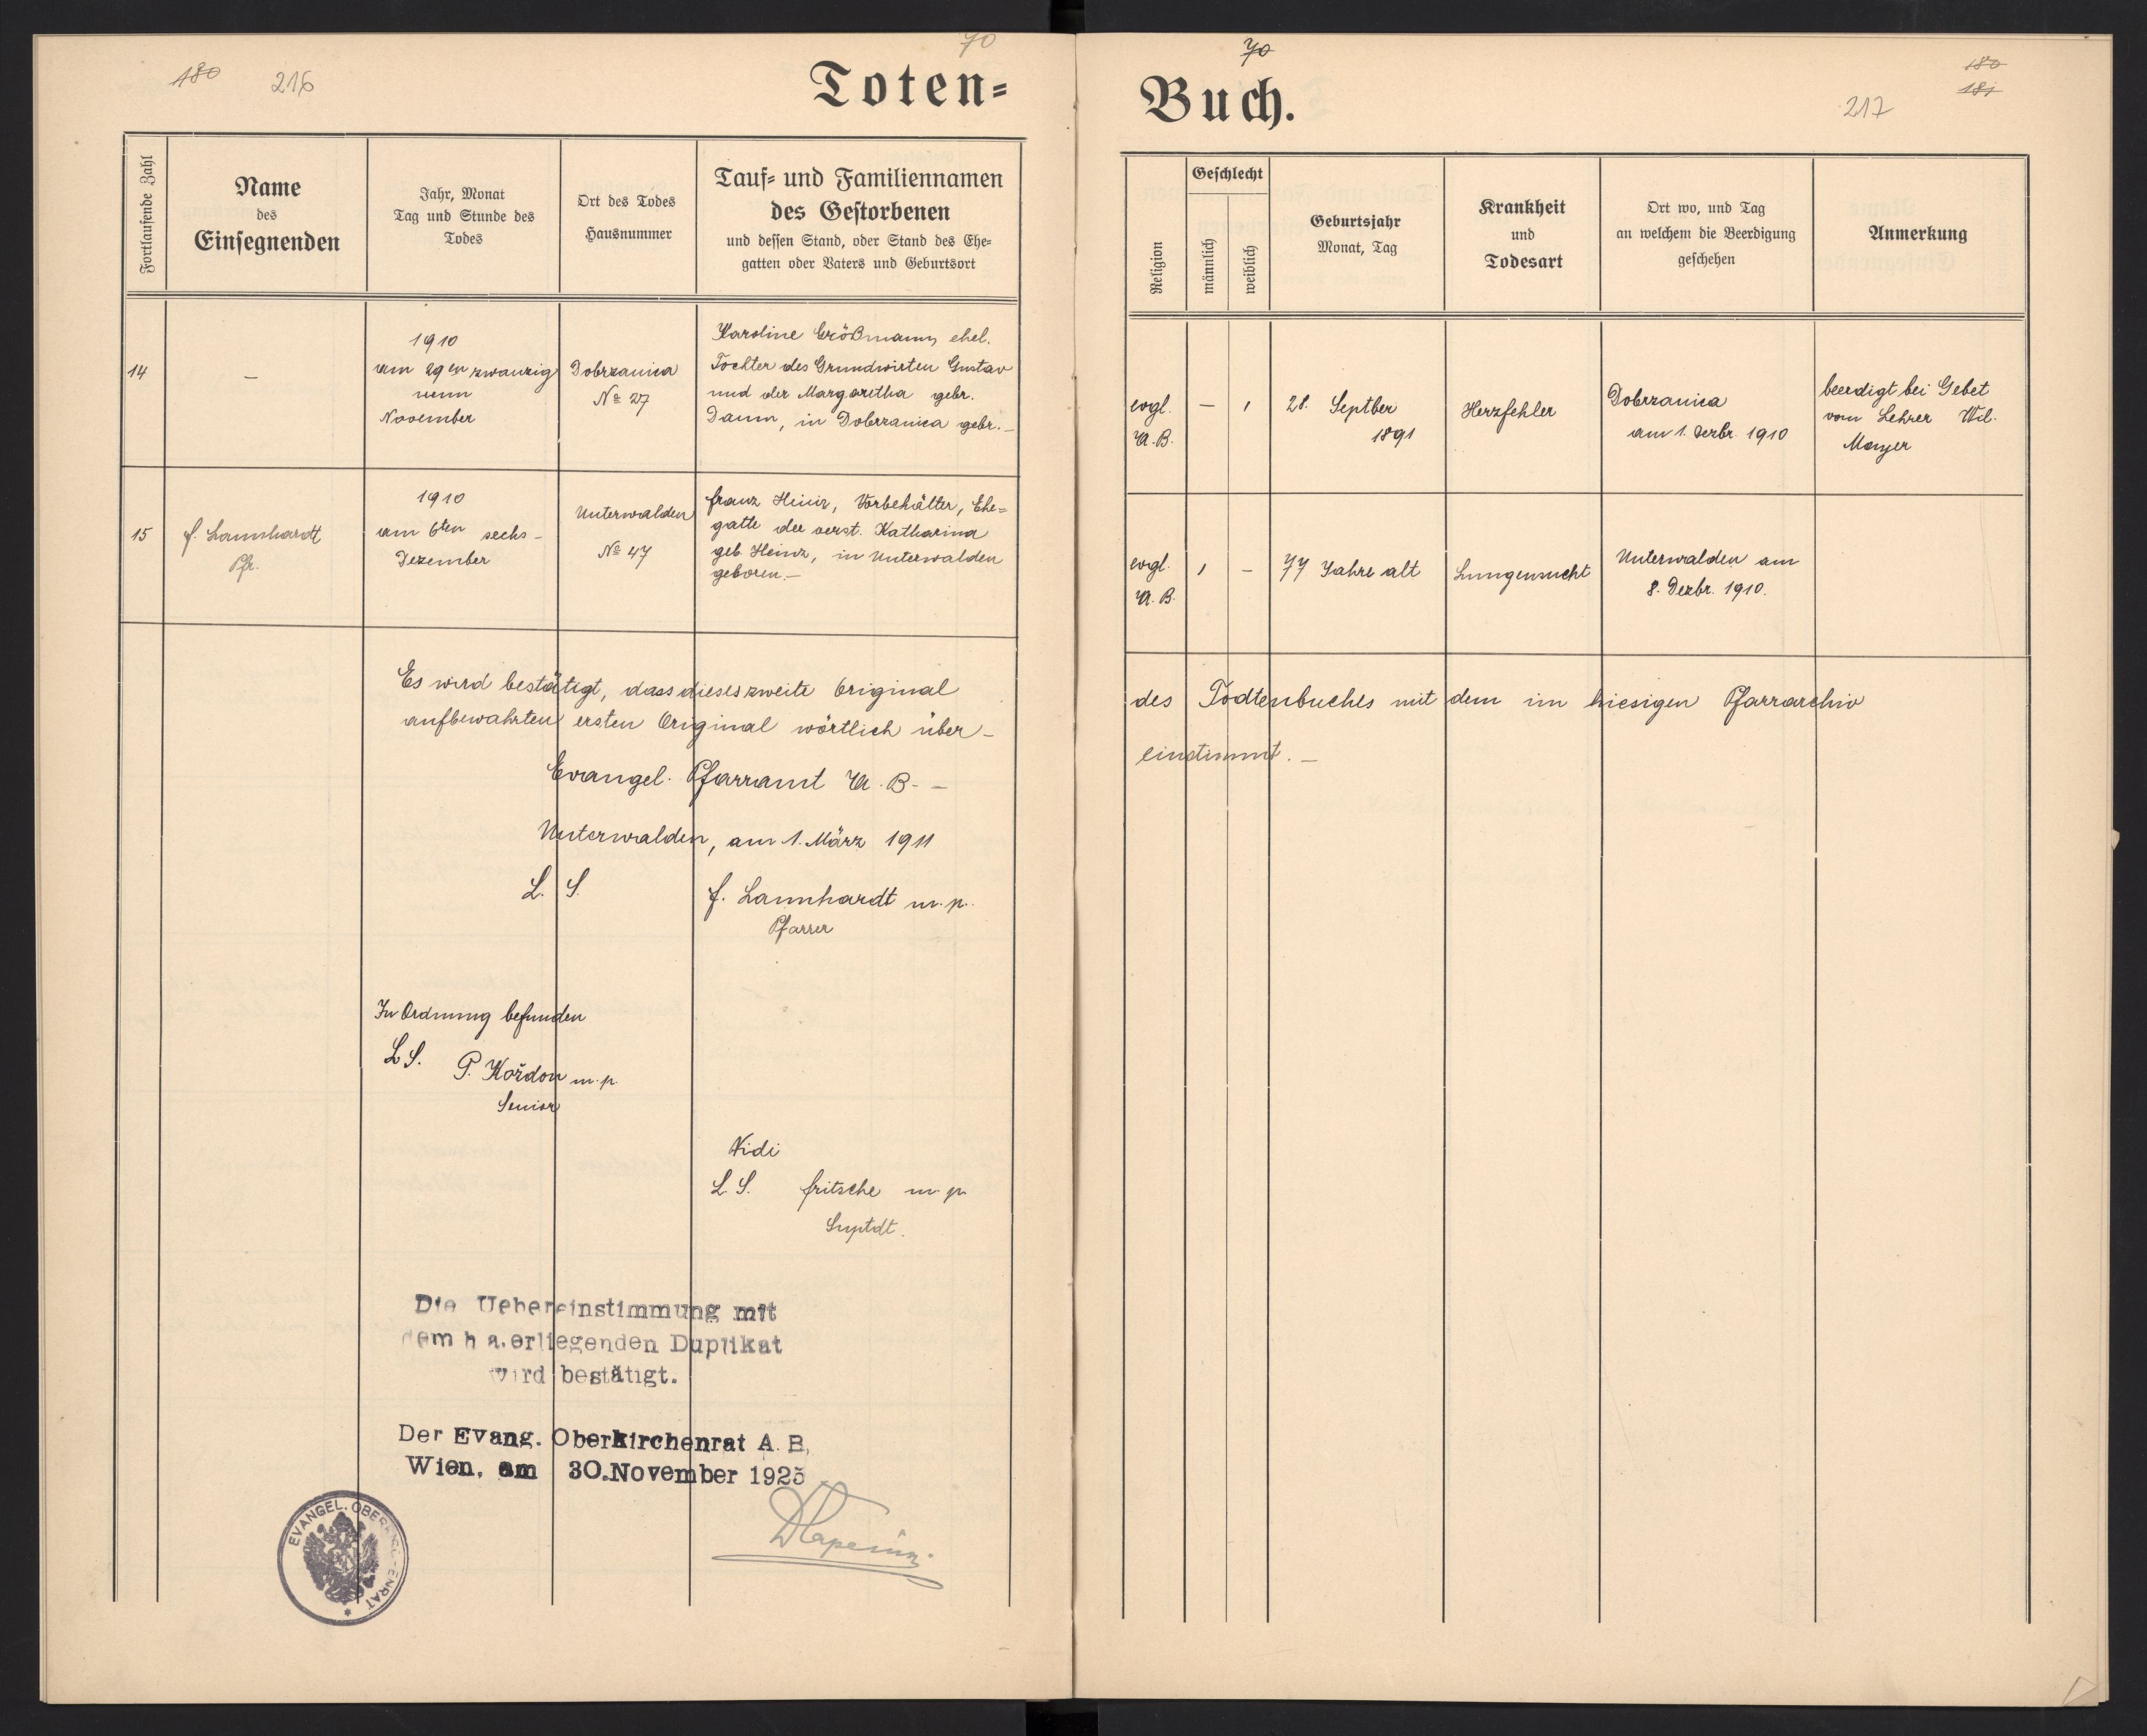 180 216 70
Toten=
Fortlaufende Zahl
Name
des
Einsegnenden
Jahr, Monat
Tag und Stunde des
Todes
Ort des Todes
Hausnummer
Tauf= und Familiennamen
des Gestorbenen
und dessen Stand, oder Stand des Ehe=
gatten oder Vaters und Geburtsort
14
–
1910
am 29en zwanzig
neun
November
Dobrzanica
№ 27
Karoline Größmann, ehel.
Tochter des Grundwirten Gustav
und der Margaretha gebr.
Daum, in Dobrzanica gebr.–
15
f. Lannhardt
Pfr.
1910
am 6ten sechs–
Dezember
Unterwalden
№ 47
Franz Heinz, Vorbehälter, Ehe=
gatte der verst. Katharina
geb. Heinz, in Unterwalden
geboren.–
Es wird bestätigt, dass dieses zweite Original
aufbewahrten ersten Original wörtlich über–
Evangel. Pfarramt A. B. –
Unterwalden, am 1. März 1911
L. S. f. Lannhardt m. p.
Pfarrer
In Ordnung befunden
L S. P. Kořdon m. p.
Senior
Vidi
L. S. Fritsche m. p.
Suptdt.
Die Uebereinstimmung mit
dem h a. erliegenden Duplikat
wird bestätigt.
Der Evang. Oberkirchenrat A. B,
Wien, am 30. November 1925
EVANGEL. OBERKIRCHENRAT *
70 180
181
217
Buch.
Religion
Geschlecht
männlich
weiblich
Geburtsjahr
Monat, Tag
Krankheit
und
Todesart
Ort wo, und Tag
an welchem die Beerdigung
geschehen
Anmerkung
evgl.
A. B.
– 1
28. Septber
1891
Herzfehler
Dobrzanica
am 1. Dezbr. 1910
beerdigt bei Gebet
vom Lehrer Wil.
Mayer
evgl.
A. B.
1 –
77 Jahre alt
Lungensucht
Unterwalden am
8. Dezbr. 1910.
des Todtenbuches mit dem im hiesigen Pfarrarchiv
einstimmt. –